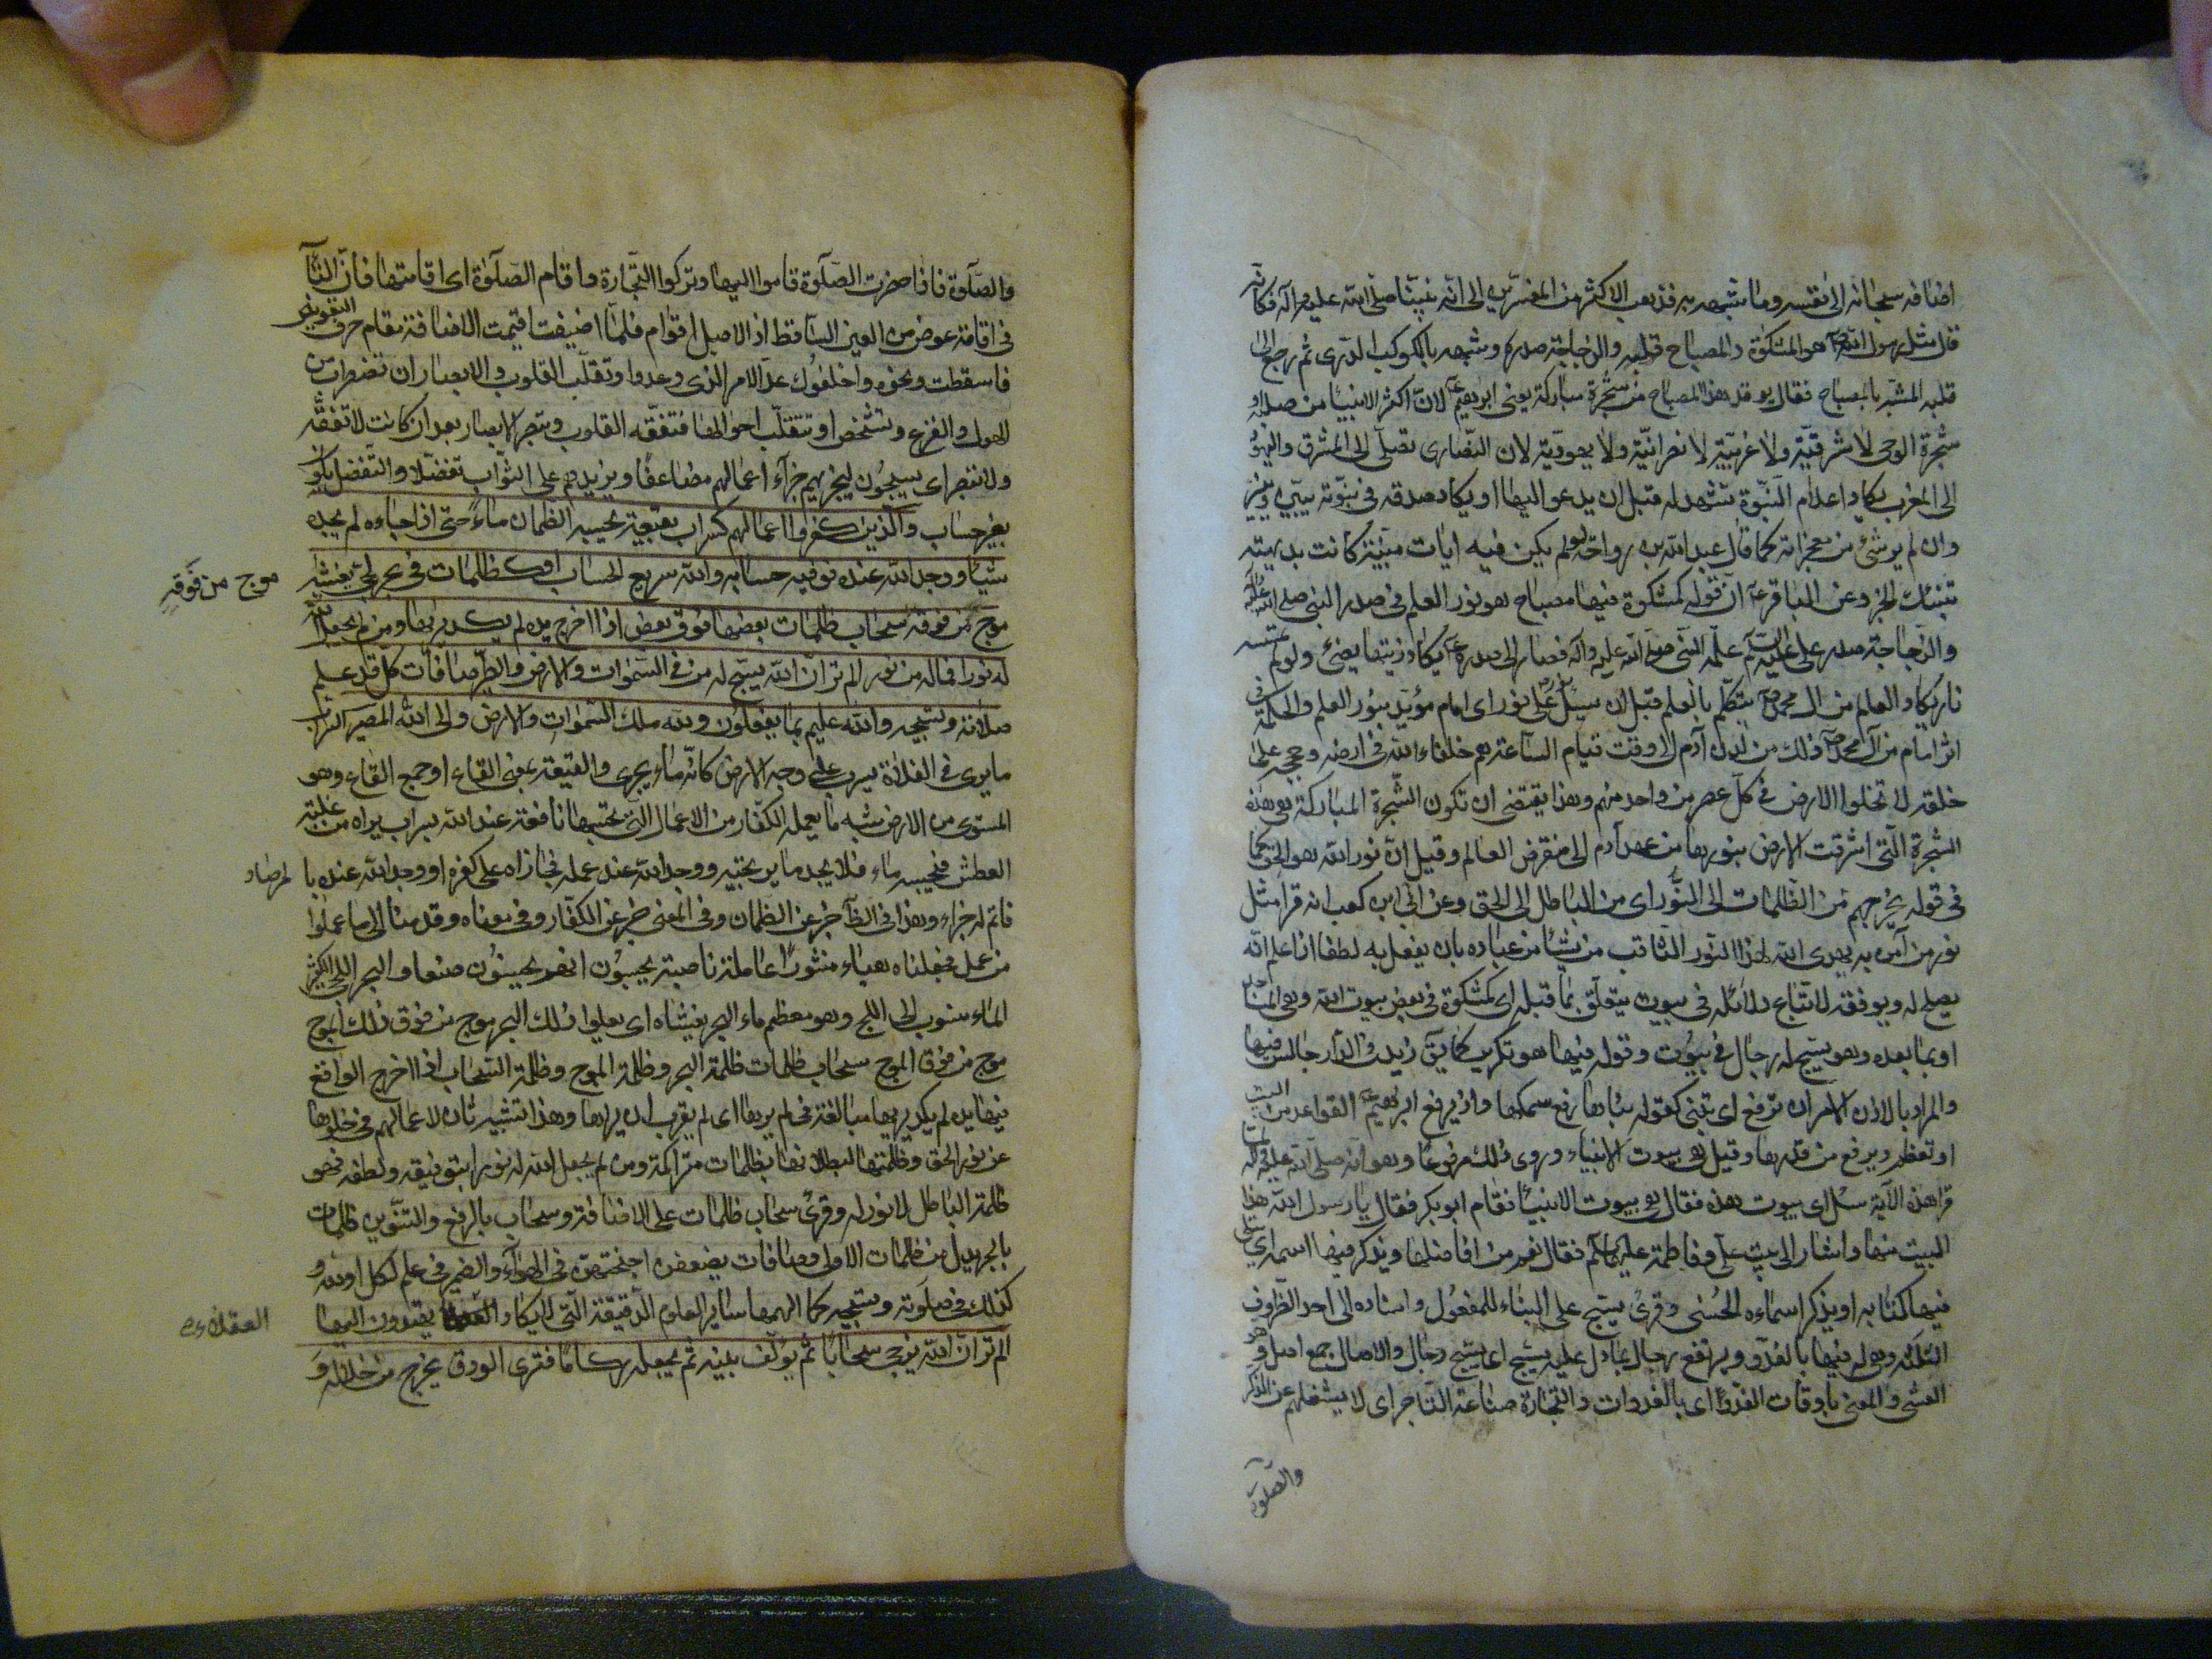 اضافه سبحانه الى نفسه وما شبهه به فذهب الاكثر من المفسرين الى انه نبينا صلى الله عليه وآله فكانه
قال مثل رسول الله ص هو المشكوة والمصباح قلبه والزجاجة صدره وشبهه بالكوكب الدرى ثم رجع الى
قلبه المشبه بالمصباح فقال يوقد هذا المصباح من شجرة مباركة يعنى ابرهيم ع لان اكثر الانبيا من صلبه او
شجرة الوحى لا شرقية ولا غربية لا نصرانية ولا يهودية لان النصارى تصلى الى المشرق واليهود
الى المغرب يكاد اعلام النبوة تشهد له قبل ان يدعو اليها او يكاد صدقه فى نبوته يتبين ويتميز
وان لم ير شئ من معجزاته كما قال عبد الله بن رواحة لو لم يكن فيه ايات مبينة كانت بديهته
تنبئك بالخبر وعن الباقر ع ان قوله كمشكوة فيها مصباح هو نور العلم فى صدر النبى صلى الله عليه وآله
والزجاجة صدر على عليه السلم علمه النبى صلى الله عليه وآله فصار الى صدره يكاد زيتها يضئ ولو لم تمسسه
نار يكاد العالم من ال محمد ص يتكلم بالعلم قبل ان يسئل نور على نور اى امام مؤيد بنور العلم والحكمة فى
اثر امام من آل محمد ص وذلك من لدن آدم الى وقت قيام الساعة هم خلفاء الله فى ارضه وحججه على
خلقه لا تخلوا الارض فى كل عصر من واحد منهم وهذا يقتضى ان تكون الشجرة المباركة هى هذه
الشجرة التى اشرقت الارض بنورها من عهد آدم الى منقرض العالم وقيل ان نور الله هو الحق كما
فى قوله يخرجهم من الظلمات الى النور اى من الباطل الى الحق وعن ابى ابن كعب انه قرا مثل
نور من آمن به يهدى الله لهذا النور الثاقب من يشا من عباده بان يفعل به لطفا اذا علم انه
يصلح له ويوفقه لاتباع دلائله فى بيوت يتعلق بما قبله اى كمشكوة فى بعض بيوت الله وهى المساجد
او بما بعده وهو يسبح له رجال فى بيوت وقوله فيها هو تكرير كما يق زيد فى الدار جالس فيها
والمراد بالاذن الامر ان ترفع اى تبنى كقوله بناها رفع سمكها واذ يرفع ابرهيم القواعد من البيت
او تعظم ويرفع من قدرها وقيل هى بيوت الانبياء وروى ذلك مرفوعا وهو انه صلى الله عليه وآله لما
قرا هذه الآية سئل اى بيوت هذه فقال هى بيوت الانبيا فقام ابو بكر فقال يا رسول الله هذا
البيت منها واشار الى بيت على وفاطمة عليهما السلم فقال نعم من افاضلها ويذكر فيها اسمه اى يتلى
فيها كتابه او يذكر اسماءه الحسنى وقرئ يسبح على البناء للمفعول واسناده الى احد الظروف
الثلثة وهى له فيها بالغدو ويرتفع رجال بما دل عليه يسبح اى يسبح رجال والاصال جمع اصل وهو
العشى والمعنى باوقات الغدو اى بالغدوات والتجارة صناعة التاجر اى لا يشغلهم عن الذكر
والصلوة
والصلوة فاذا حضرت الصلوة قاموا اليها وتركوا التجارة واقام الصلوة اى اقامتها فان التا
فى اقامة عوض من العين الساقط اذ الاصل اقوام فلما اضيفت اقيمت الاضافة مقام حرف التعويض
فاسقطت ونحوه واخلفوك عد الامر الذى وعدوا وتقلب القلوب والابصار ان تضطرب من
الهول والفزع وتشخص او تتقلب احوالها فتفقه القلوب وتبصر الابصار بعد ان كانت لا تفقه
ولا تبصر اى يسبحون ليجزيهم جزآء اعمالهم مضاعفا ويزيدهم على الثواب تفضلا والتفضل يكون
بغير حساب والذين كفروا اعمالهم كسراب بقيعة يحسبه الظمان ماء حتى اذا جاءه لم يجده
شيئا ووجد الله عنده فوفيه حسابه والله سريع الحساب او كظلمات فى بحر لجى يغشيه
موج من فوقه
موج من فوقه سحاب ظلمات بعضها فوق بعض اذا اخرج يده لم يكد يريها ومن لم يجعل الله
له نورا فما له من نور الم تر ان الله يسبح له من فى السموات والارض والطير صافات كل قد علم
صلاته وتسبيحه والله عليم بما يفعلون ولله ملك السموات والارض والى الله المصير السراب
ما يرى فى الفلاة يسرب على وجه الارض كانه ماء يجرى والقيعة بمعنى القاع او جمع القاع وهو
المستوى من الارض شبه ما يعمله الكفار من الاعمال التى يحتسبها نافعة عند الله بسراب يراه من غلبته
العطش فيحسبه ماء فلا يجد ما يرتجيه ووجد الله عند عمله فجازاه على كفره او وجد الله عنده با
لمرصاد
فاتم له جزاءه وهذا فى الظآ خبر عن الظمان وفى المعنى خبر عن الكفار وفى معناه وقدمنا الى ما عملوا
من عمل فجعلناه هباء منثورا عاملة ناصبة يحسبون انهم يحسنون صنعا والبحر اللجى الكثير
الماء منسوب الى اللج وهو معظم ماء البحر يغشاه اى يعلوا ذلك البحر موج من فوق ذلك الموج
موج من فوق الموج سحاب ظلمات ظلمة البحر وظلمة الموج وظلمة السحاب اذا اخرج الواقع
فيها يده لم يكد يريها مبالغة فى لم يرها اى لم يقرب ان يراها وهذا تشبيه ثان لاعمالهم فى خلوها
عن نور الحق وظلمتها لبطلانها بظلمات متراكمة ومن لم يجعل الله له نورا بتوفيقه ولطفه فهو
ظلمة الباطل لا نور له وقرئ سحاب ظلمات على الاضافة وسحاب بالرفع والتنوين ظلمات
بالجر بدل من ظلمات الاولى وصافات يصففن اجنحتهن فى الهوآء والضمير فى علم لكل او لله و
كذلك فى صلوته وتسبيحه كما الهمها ساير العلوم الدقيقة التى لا يكاد يهتدون اليها
العقلاء
الم تر ان الله يزجى سحابا ثم يؤلف بينه ثم يجعله ركاما فترى الودق يخرج من خلاله و